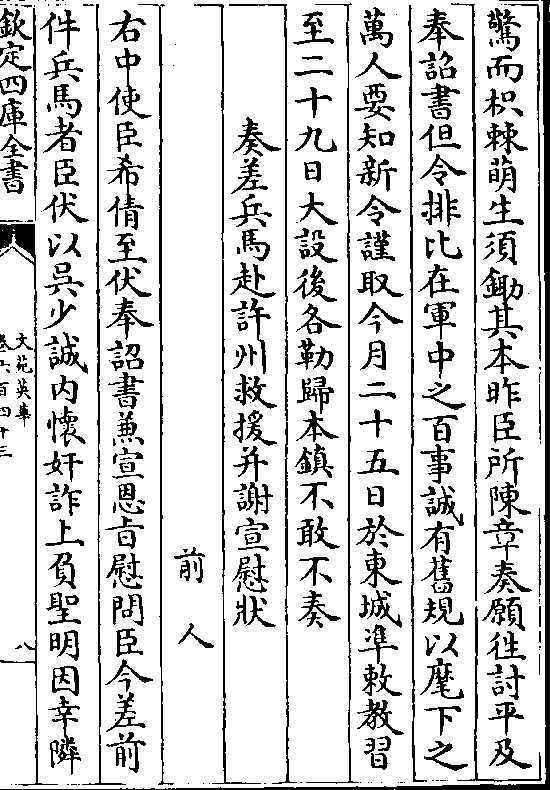 驚而枳棘萌生須鋤其本昨臣所陳章奏願徃討平及
奉詔書但令排比在軍中之百事誠有舊規以麾下之
萬人要知新令謹取今月二十五日於東城凖敕教習
至二十九日大設後各勒歸本鎮不敢不奏
奏差兵馬赴許州救援并謝宣慰狀
前人
右中使臣希倩至伏奉詔書兼宣恩旨慰問臣今差前
件兵馬者臣伏以吳少誠内懷奸詐上負聖明因幸隣
欽定四庫全書
文苑英華
卷六百四十三
八